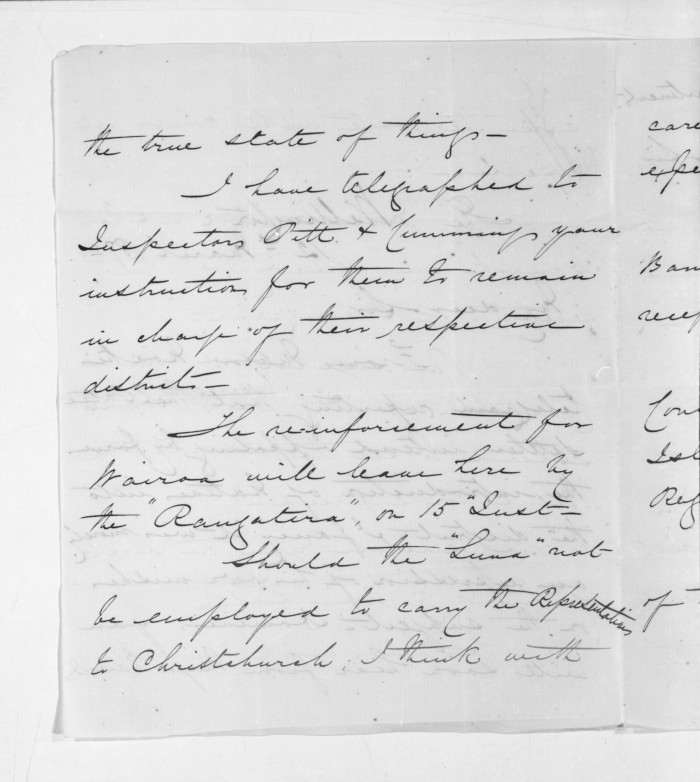 the true state of things—
I have telegraphed to
Inspectors Pitt & Cummings your
instructions for them to remain
in charge of their respective
districts—
The reinforcement for
Wairoa will leave here by
the "Rangatira", on 15 "Inst—
Should the "Luna" not
be employed to carry the Representatives
to Christchurch I think with
care
expe
Ban
recep
Con
Isl
Reg
of T